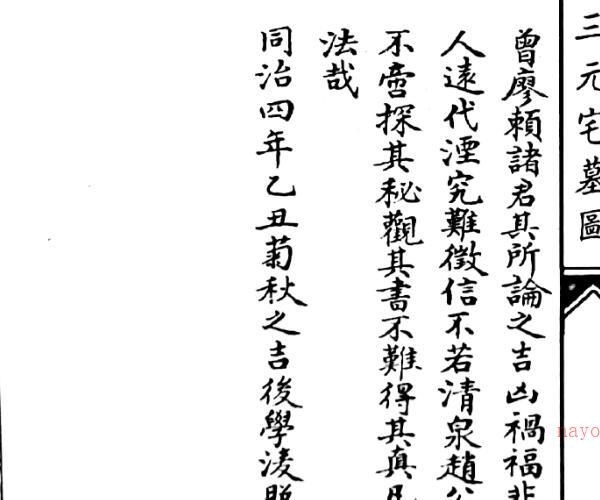 三元宅墓圖
曾廖賴諸君其所論之吉凶禍福非
人遠代湮究難徵信不若清泉趙公
不啻探其秘觀其書不難得其真凡
法哉
同治四年乙丑菊秋之吉後學淩
nayo